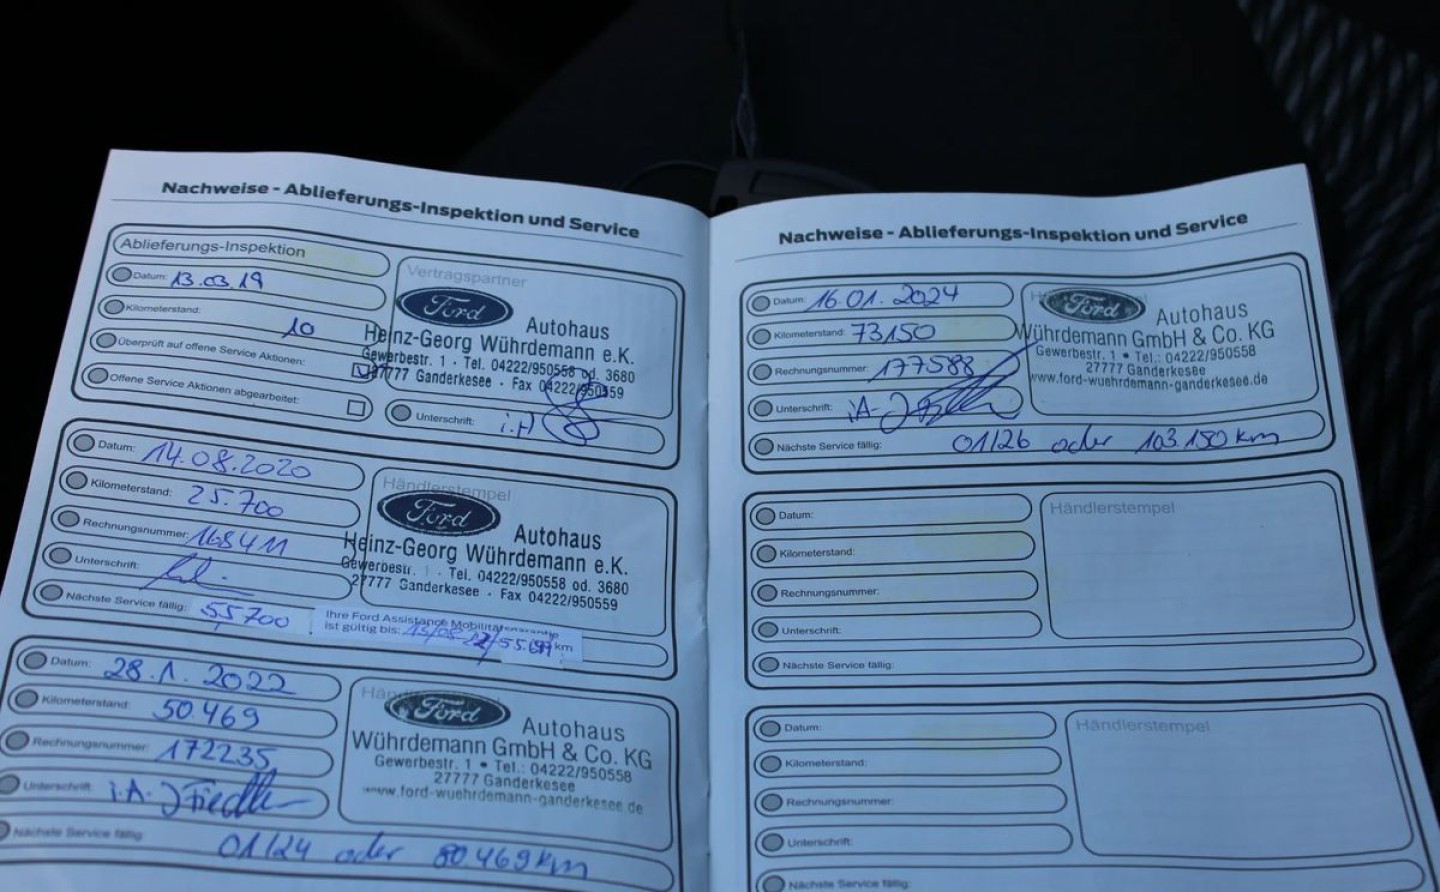 Nachweise - Ablieferungs-Inspektion und Service
Ablieferungs-Inspektion
Datum: 13.03.19
Kilometerstand: 10
Überprüft auf offene Service Aktionen:
Offene Service Aktionen abgearbeitet:
Vertragspartner
Ford
Autohaus
Heinz-Georg Wührdemann e.K.
Gewerbestr. 1 · Tel. 04222/950558 od. 3680
27777 Ganderkesee · Fax 04222/950559
Unterschrift:
Datum: 14.08.2020
Kilometerstand: 25.700
Rechnungsnummer: 168411
Unterschrift:
Nächste Service fällig: 55.700
Händlerstempel
Ford
Autohaus
Heinz-Georg Wührdemann e.K.
Gewerbestr. 1 · Tel. 04222/950558 od. 3680
27777 Ganderkesee · Fax 04222/950559
Ihre Ford Assistance Mobilitätsgarantie
ist gültig bis: km
Datum: 28.1.2022
Kilometerstand: 50.469
Rechnungsnummer: 172235
Unterschrift: i.A.
Nächste Service fällig: 01/24 oder 80.469km
Ford
Autohaus
Wührdemann GmbH & Co. KG
Gewerbestr. 1 • Tel.: 04222/950558
27777 Ganderkesee
www.ford-wuehrdemann-ganderkesee.de
Nachweise - Ablieferungs-Inspektion und Service
Datum: 16.01.2024
Kilometerstand: 73150
Rechnungsnummer: 177588
Unterschrift: i.A.
Nächste Service fällig: 01/26 oder 103.150 km
Ford
Autohaus
Wührdemann GmbH & Co. KG
Gewerbestr. 1 • Tel.: 04222/950558
27777 Ganderkesee
www.ford-wuehrdemann-ganderkesee.de
Datum:
Kilometerstand:
Rechnungsnummer:
Unterschrift:
Nächste Service fällig:
Händlerstempel
Datum:
Kilometerstand:
Rechnungsnummer:
Unterschrift:
Nächste Service fällig:
Händlerstempel